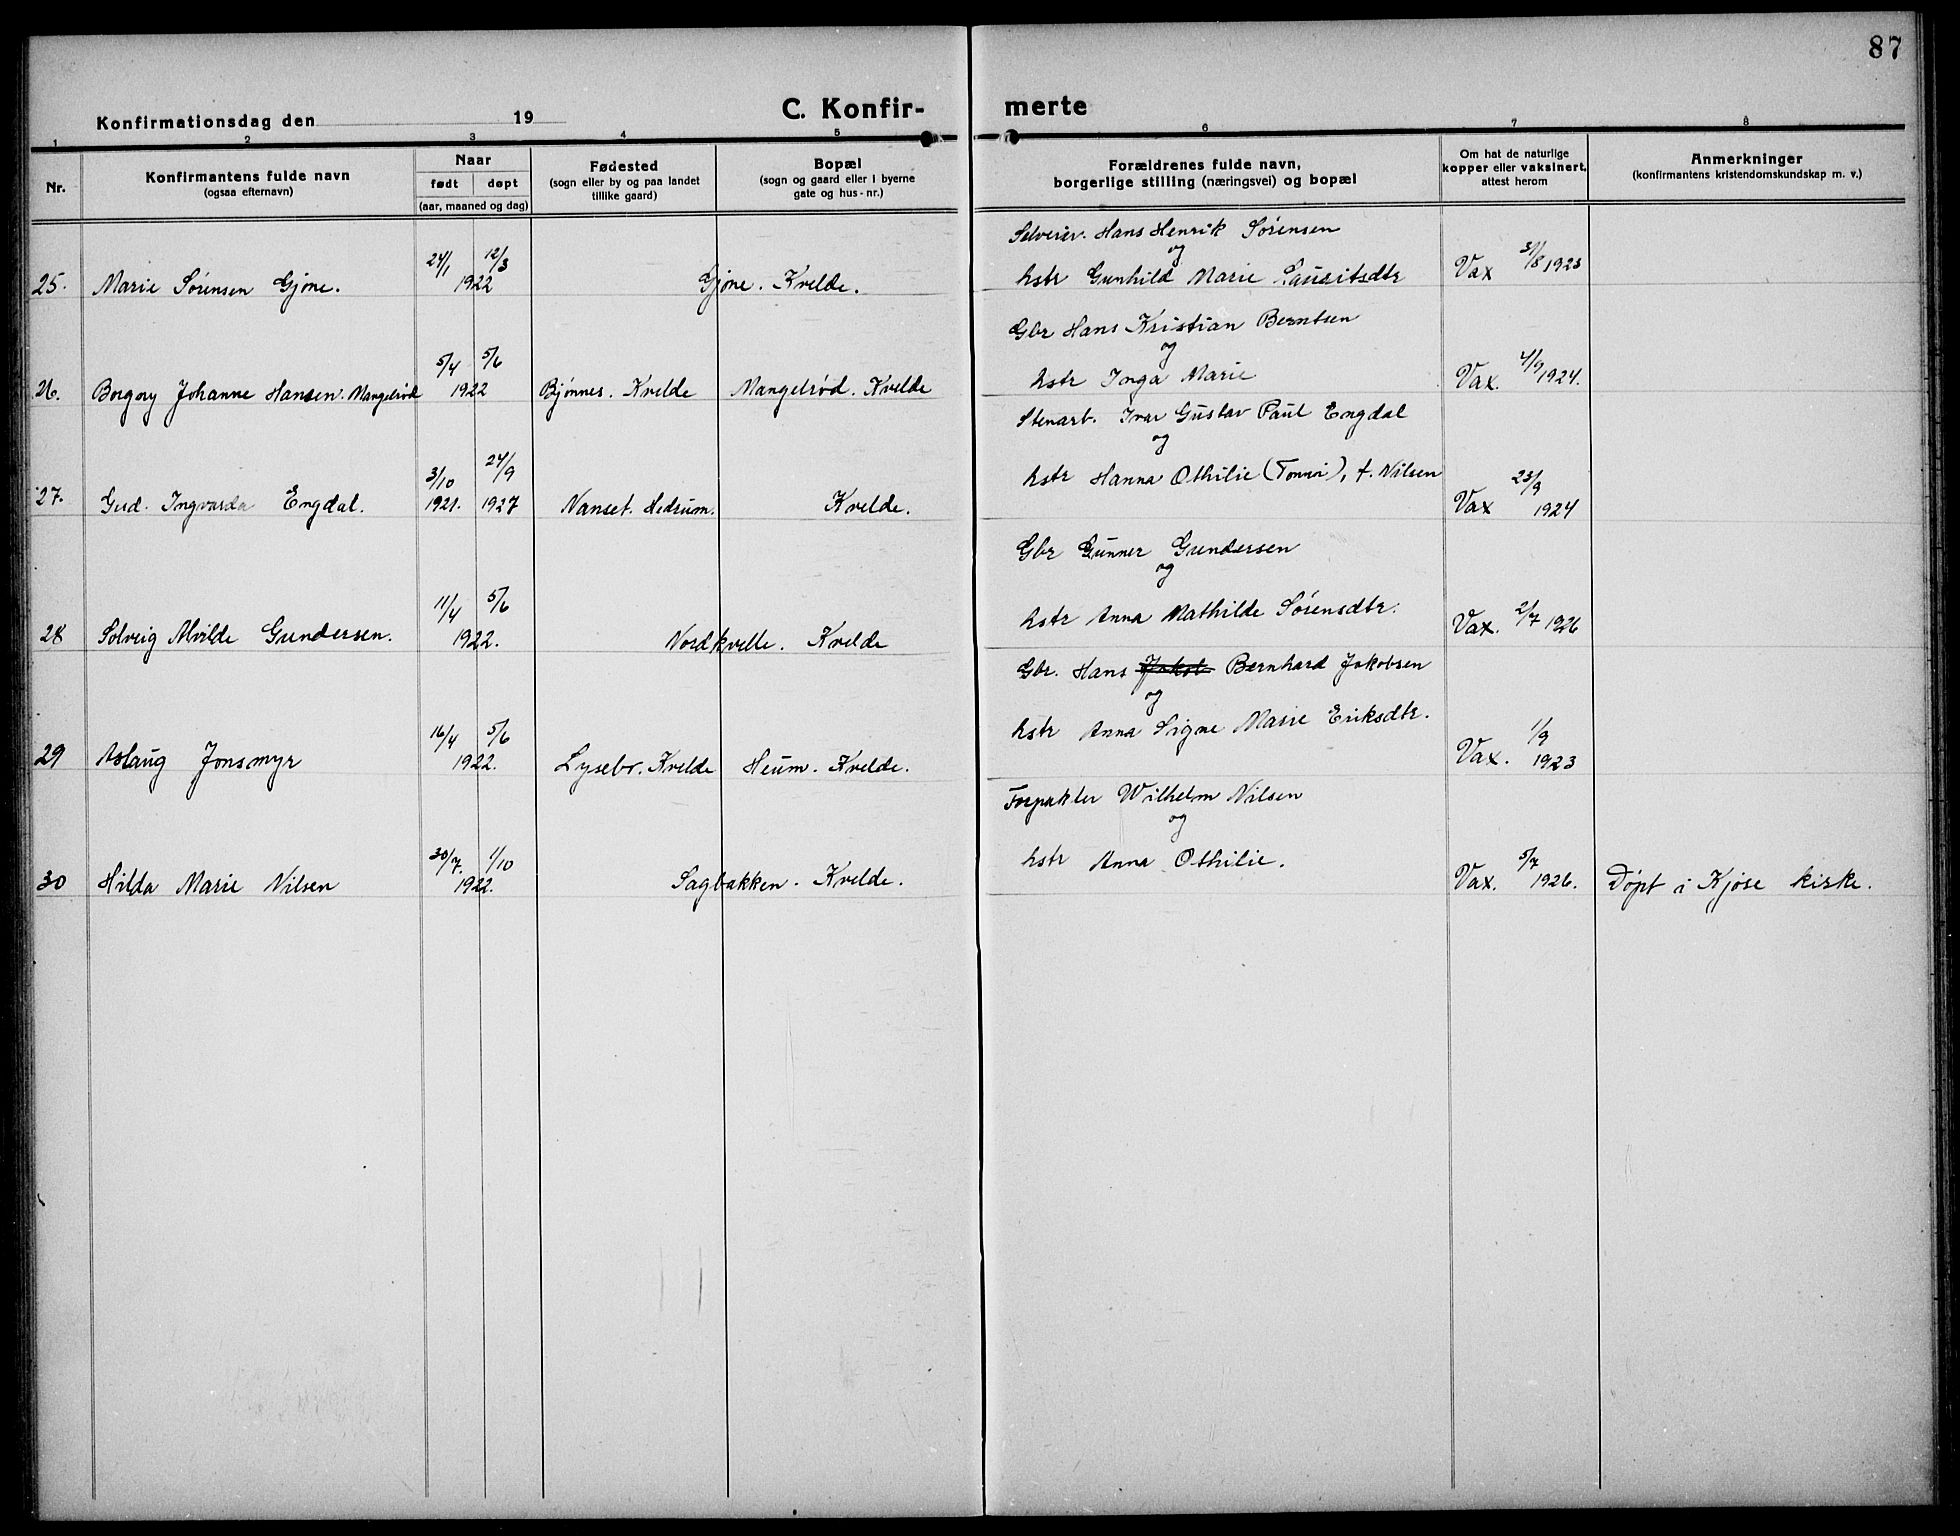 87
C. Konfir- merte
Konfirmationsdag den 19
1 2 3 4 5 6 7 8
Nr.
Konfirmantens fulde navn
(ogsaa efternavn)
Naar
født døpt
(aar, maaned og dag)
Fødested
(sogn eller by og paa landet
tillike gaard)
Bopæl
(sogn og gaard eller i byerne
gate og hus-nr.)
Forældrenes fulde navn,
borgerlige stilling (næringsvei) og bopæl
Om hat de naturlige
kopper eller vaksinert,
attest herom
Anmerkninger
(konfirmantens kristendomskundskap m. v.)
Selveier. Hans Henrik Sørensen
og
24/1 12/3
25. Marie Sørensen Gjøne. 1922 Gjøne. Kvelde. hstr Gunhild Marie Lauritsdtr Vax 31/8 1923
Gbr Hans Kristian Berntsen
og
5/4 5/6
26. Borgny Johanne Hansen Mangelrød 1922 Bjønnes. Kvelde Mangelrød. Kvelde hstr Inga Marie Vax. 4/9 1924.
Stenarb. Ivar Gustav Paul Engdal
og
3/10 24/9
27. Gud. Ingvarda Engdal. 1921. 1927 Nanset. Hedrum. Kvelde. hstr Hanna Othilie (Tonni), f. Nilsen Vax 23/9 1924
Gbr Gunner Gundersen
og
11/4 5/6
28 Solveig Alvilde Gundersen. 1922. Nordkvelle. Kvelde hstr Anna Mathilde Sørensdtr. Vax. 2/7 1926
Gbr. Hans Jakob Bernhard Jakobsen
og
16/4 5/6
29 Aslaug Jonsmyr 1922. Lysebr. Kvelde Heum. Kvelde. hstr Anna Signe Marie Eriksdtr. Vax. 1/9 1923
Forpakter Wilhelm Nilsen
og
30/7. 1/10
30 Hilda Marie Nilsen 1922. Sagbakken. Kvelde. hstr Anna Othilie. Vax. 5/7 1926. Døpt i Kjøse kirke.